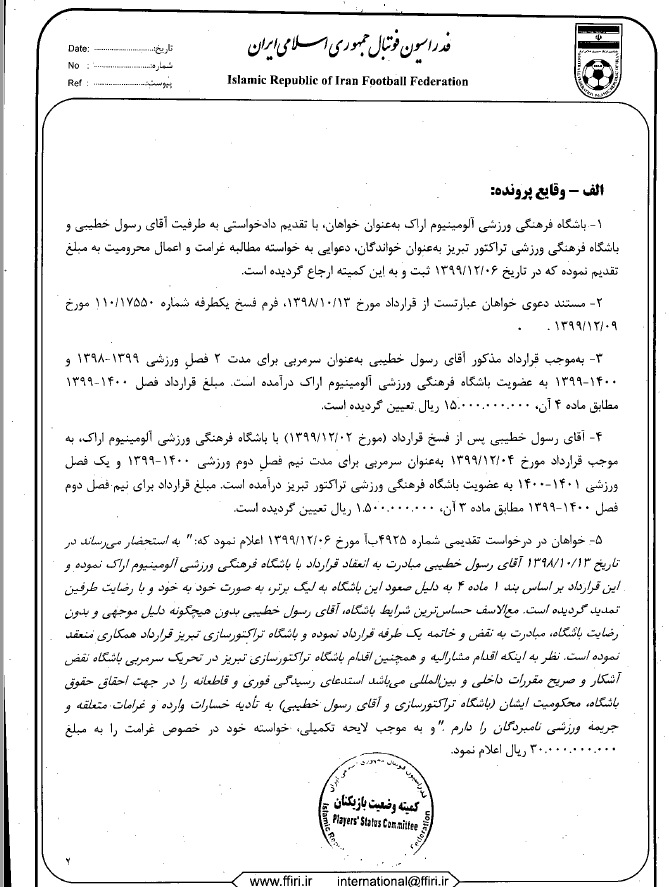 فدراسیون فوتبال جمهوری اسلامی ایران
Islamic Republic of Iran Football Federation
Date: ........................ تاریخ:
No : ........................ شماره:
Ref : ........................ پیوست:
الف – وقایع پرونده:
۱- باشگاه فرهنگی ورزشی آلومینیوم اراک به‌عنوان خواهان، با تقدیم دادخواستی به طرفیت آقای رسول خطیبی و
باشگاه فرهنگی ورزشی تراکتور تبریز به‌عنوان خواندگان، دعوایی به خواسته مطالبه غرامت و اعمال محرومیت به مبلغ
تقدیم نموده که در تاریخ ۱۳۹۹/۱۲/۰۶ ثبت و به این کمیته ارجاع گردیده است.
۲- مستند دعوی خواهان عبارتست از قرارداد مورخ ۱۳۹۸/۱۰/۱۳، فرم فسخ یکطرفه شماره ۱۱۰/۱۷۵۵۰ مورخ
۱۳۹۹/۱۲/۰۹ .
۳- به‌موجب قرارداد مذکور آقای رسول خطیبی به‌عنوان سرمربی برای مدت ۲ فصل ورزشی ۱۳۹۹-۱۳۹۸ و
۱۴۰۰-۱۳۹۹ به عضویت باشگاه فرهنگی ورزشی آلومینیوم اراک درآمده است. مبلغ قرارداد فصل ۱۴۰۰-۱۳۹۹
مطابق ماده ۴ آن، ۱۵.۰۰۰.۰۰۰.۰۰۰ ریال تعیین گردیده است.
۴- آقای رسول خطیبی پس از فسخ قرارداد (مورخ ۱۳۹۹/۱۲/۰۲) با باشگاه فرهنگی ورزشی آلومینیوم اراک، به
موجب قرارداد مورخ ۱۳۹۹/۱۲/۰۴ به‌عنوان سرمربی برای مدت نیم فصل دوم ورزشی ۱۴۰۰-۱۳۹۹ و یک فصل
ورزشی ۱۴۰۱-۱۴۰۰ به عضویت باشگاه فرهنگی ورزشی تراکتور تبریز درآمده است. مبلغ قرارداد برای نیم فصل دوم
فصل ۱۴۰۰-۱۳۹۹ مطابق ماده ۳ آن، ۱.۵۰۰.۰۰۰.۰۰۰ ریال تعیین گردیده است.
۵- خواهان در درخواست تقدیمی شماره ۴۹۲۵ب‌آ مورخ ۱۳۹۹/۱۲/۰۶ اعلام نمود که:" به استحضار می‌رساند در
تاریخ ۱۳۹۸/۱۰/۱۳ آقای رسول خطیبی مبادرت به انعقاد قرارداد با باشگاه فرهنگی ورزشی آلومینیوم اراک نموده و
این قرارداد بر اساس بند ۱ ماده ۴ به دلیل صعود این باشگاه به لیگ برتر، به صورت خود به خود و با رضایت طرفین
تمدید گردیده است. مع‌الاسف حساس‌ترین شرایط باشگاه، آقای رسول خطیبی بدون هیچگونه دلیل موجهی و بدون
رضایت باشگاه، مبادرت به نقض و خاتمه یک طرفه قرارداد نموده و باشگاه تراکتورسازی تبریز قرارداد همکاری منعقد
نموده است. نظر به اینکه اقدام مشارالیه و همچنین اقدام باشگاه تراکتورسازی تبریز در تحریک سرمربی باشگاه نقض
آشکار و صریح مقررات داخلی و بین‌المللی می‌باشد استدعای رسیدگی فوری و قاطعانه را در جهت احقاق حقوق
باشگاه، محکومیت ایشان (باشگاه تراکتورسازی و آقای رسول خطیبی) به تأدیه خسارات وارده و غرامات متعلقه و
جریمه ورزشی نامبردگان را دارم ."و به موجب لایحه تکمیلی، خواسته خود در خصوص غرامت را به مبلغ
۳۰.۰۰۰.۰۰۰.۰۰۰ ریال اعلام نمود.
فدراسیون فوتبال جمهوری اسلامی ایران
کمیته وضعیت بازیکنان
Players' Status Committee
۲
www.ffiri.ir international@ffiri.ir